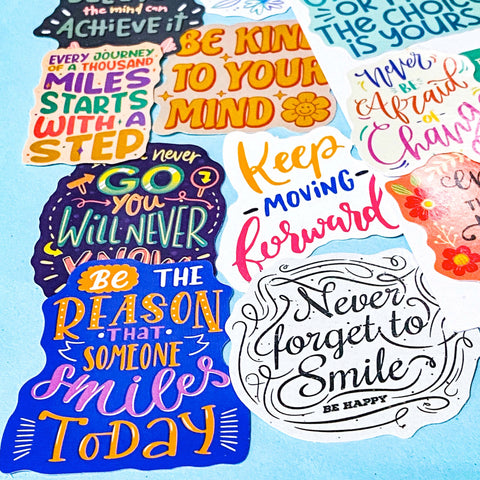 the mind can
ACHIEVE it
EVERY JOURNEY
OF A THOUSAND
MILES
STARTS
WITH A
STEP
BE KIND
TO YOUR
MIND
OR
THE CHOICE
IS YOURS
Never
BE
Afraid
OF
Change
never
GO
YOU
WILL NEVER
KNOW
Keep
MOVING
forward
BE THE
REASON
THAT
SOMEONE
smiles
TODAY
Never
forget to
Smile
BE HAPPY